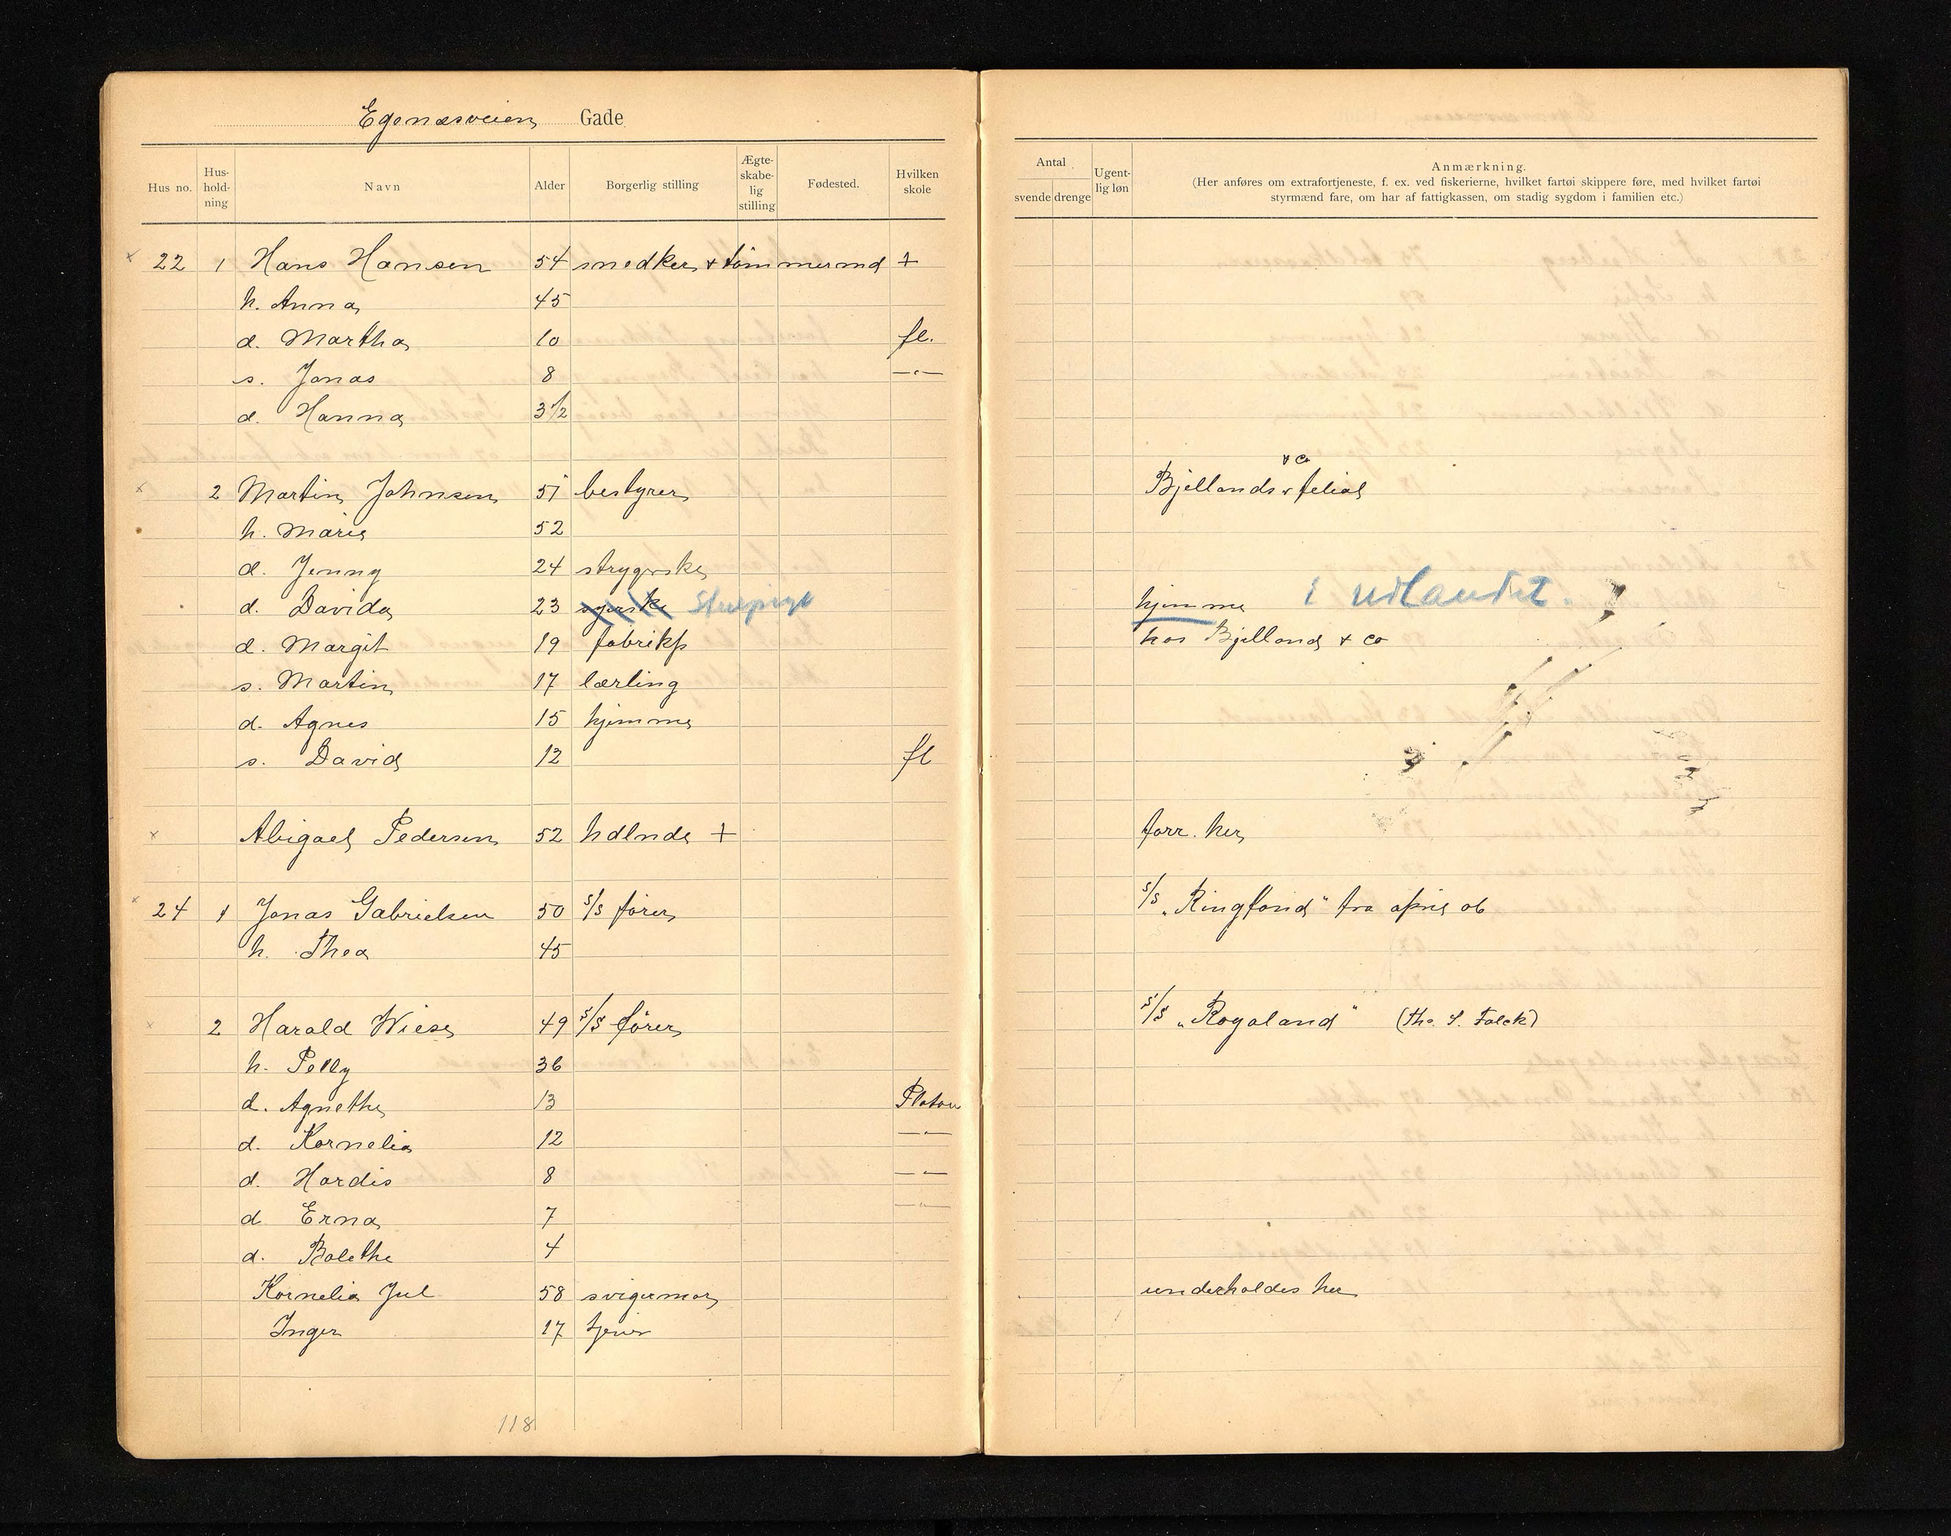 Egenæsveien Gade
Hus no. Hus-hold-ning Navn Alder Borgerlig stilling Ægte-skabe-lig stilling Fødested. Hvilken skole
Antal svende drenge Ugent-lig løn Anmærkning.
(Her anføres om extrafortjeneste, f. ex. ved fiskerierne, hvilket fartøi skippere føre, med hvilket fartøi
styrmænd fare, om har af fattigkassen, om stadig sygdom i familien etc.)
× 22 1 Hans Hansen 54 snedker + tømmermd +
h. Anna 45
d. Martha 10 fl.
s. Jonas 8 —"—
d. Hanna 3½
& Co
× 2 Martin Johnsen 51 bestyrer Bjellands filial
h. Marie 52
d. Jenny 24 strygerske
d. Davida 23 syerske Stuepige hjemme i udlandet.
d. Margit 19 fabrikp hos Bjelland & Co
s. Martin 17 lærling
d. Agnes 15 hjemme
s. David 12 fl
× Abigael Pedersen 52 hdlnde + forr. her
× 24 1 Jonas Gabrielsen 50 s/s fører s/s „Ringfond" fra april ab
h. Thea 45
× 2 Harald Wiese 49 s/s fører s/s „Rogaland" (Th. S. Falck)
h. Pelly 36
d. Agnethe 13 Platou
d. Kornelia 12 —"—
d. Hardis 8 —"—
d Erna 7 —"—
d. Bolethe 4
Kornelia Jul 58 svigermor underholdes her
Inger 17 tjener
118